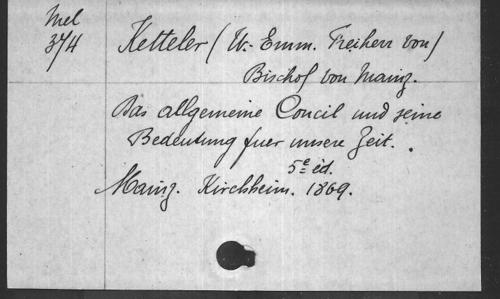 Mel
374
Ketteler (W. Emm. Freiherr von)
Bischof von Mainz.
Das allgemeine Concil und seine
Bedeutung fuer unsere Zeit.
5e éd.
Mainz. Kirchheim. 1869.